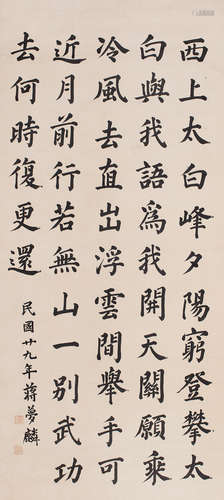 西上太白峰夕陽窮登攀太
白與我語爲我開天關願乘
冷風去直出浮雲間舉手可
近月前行若無山一別武功
去何時復更還
民國廿九年蔣夢麟